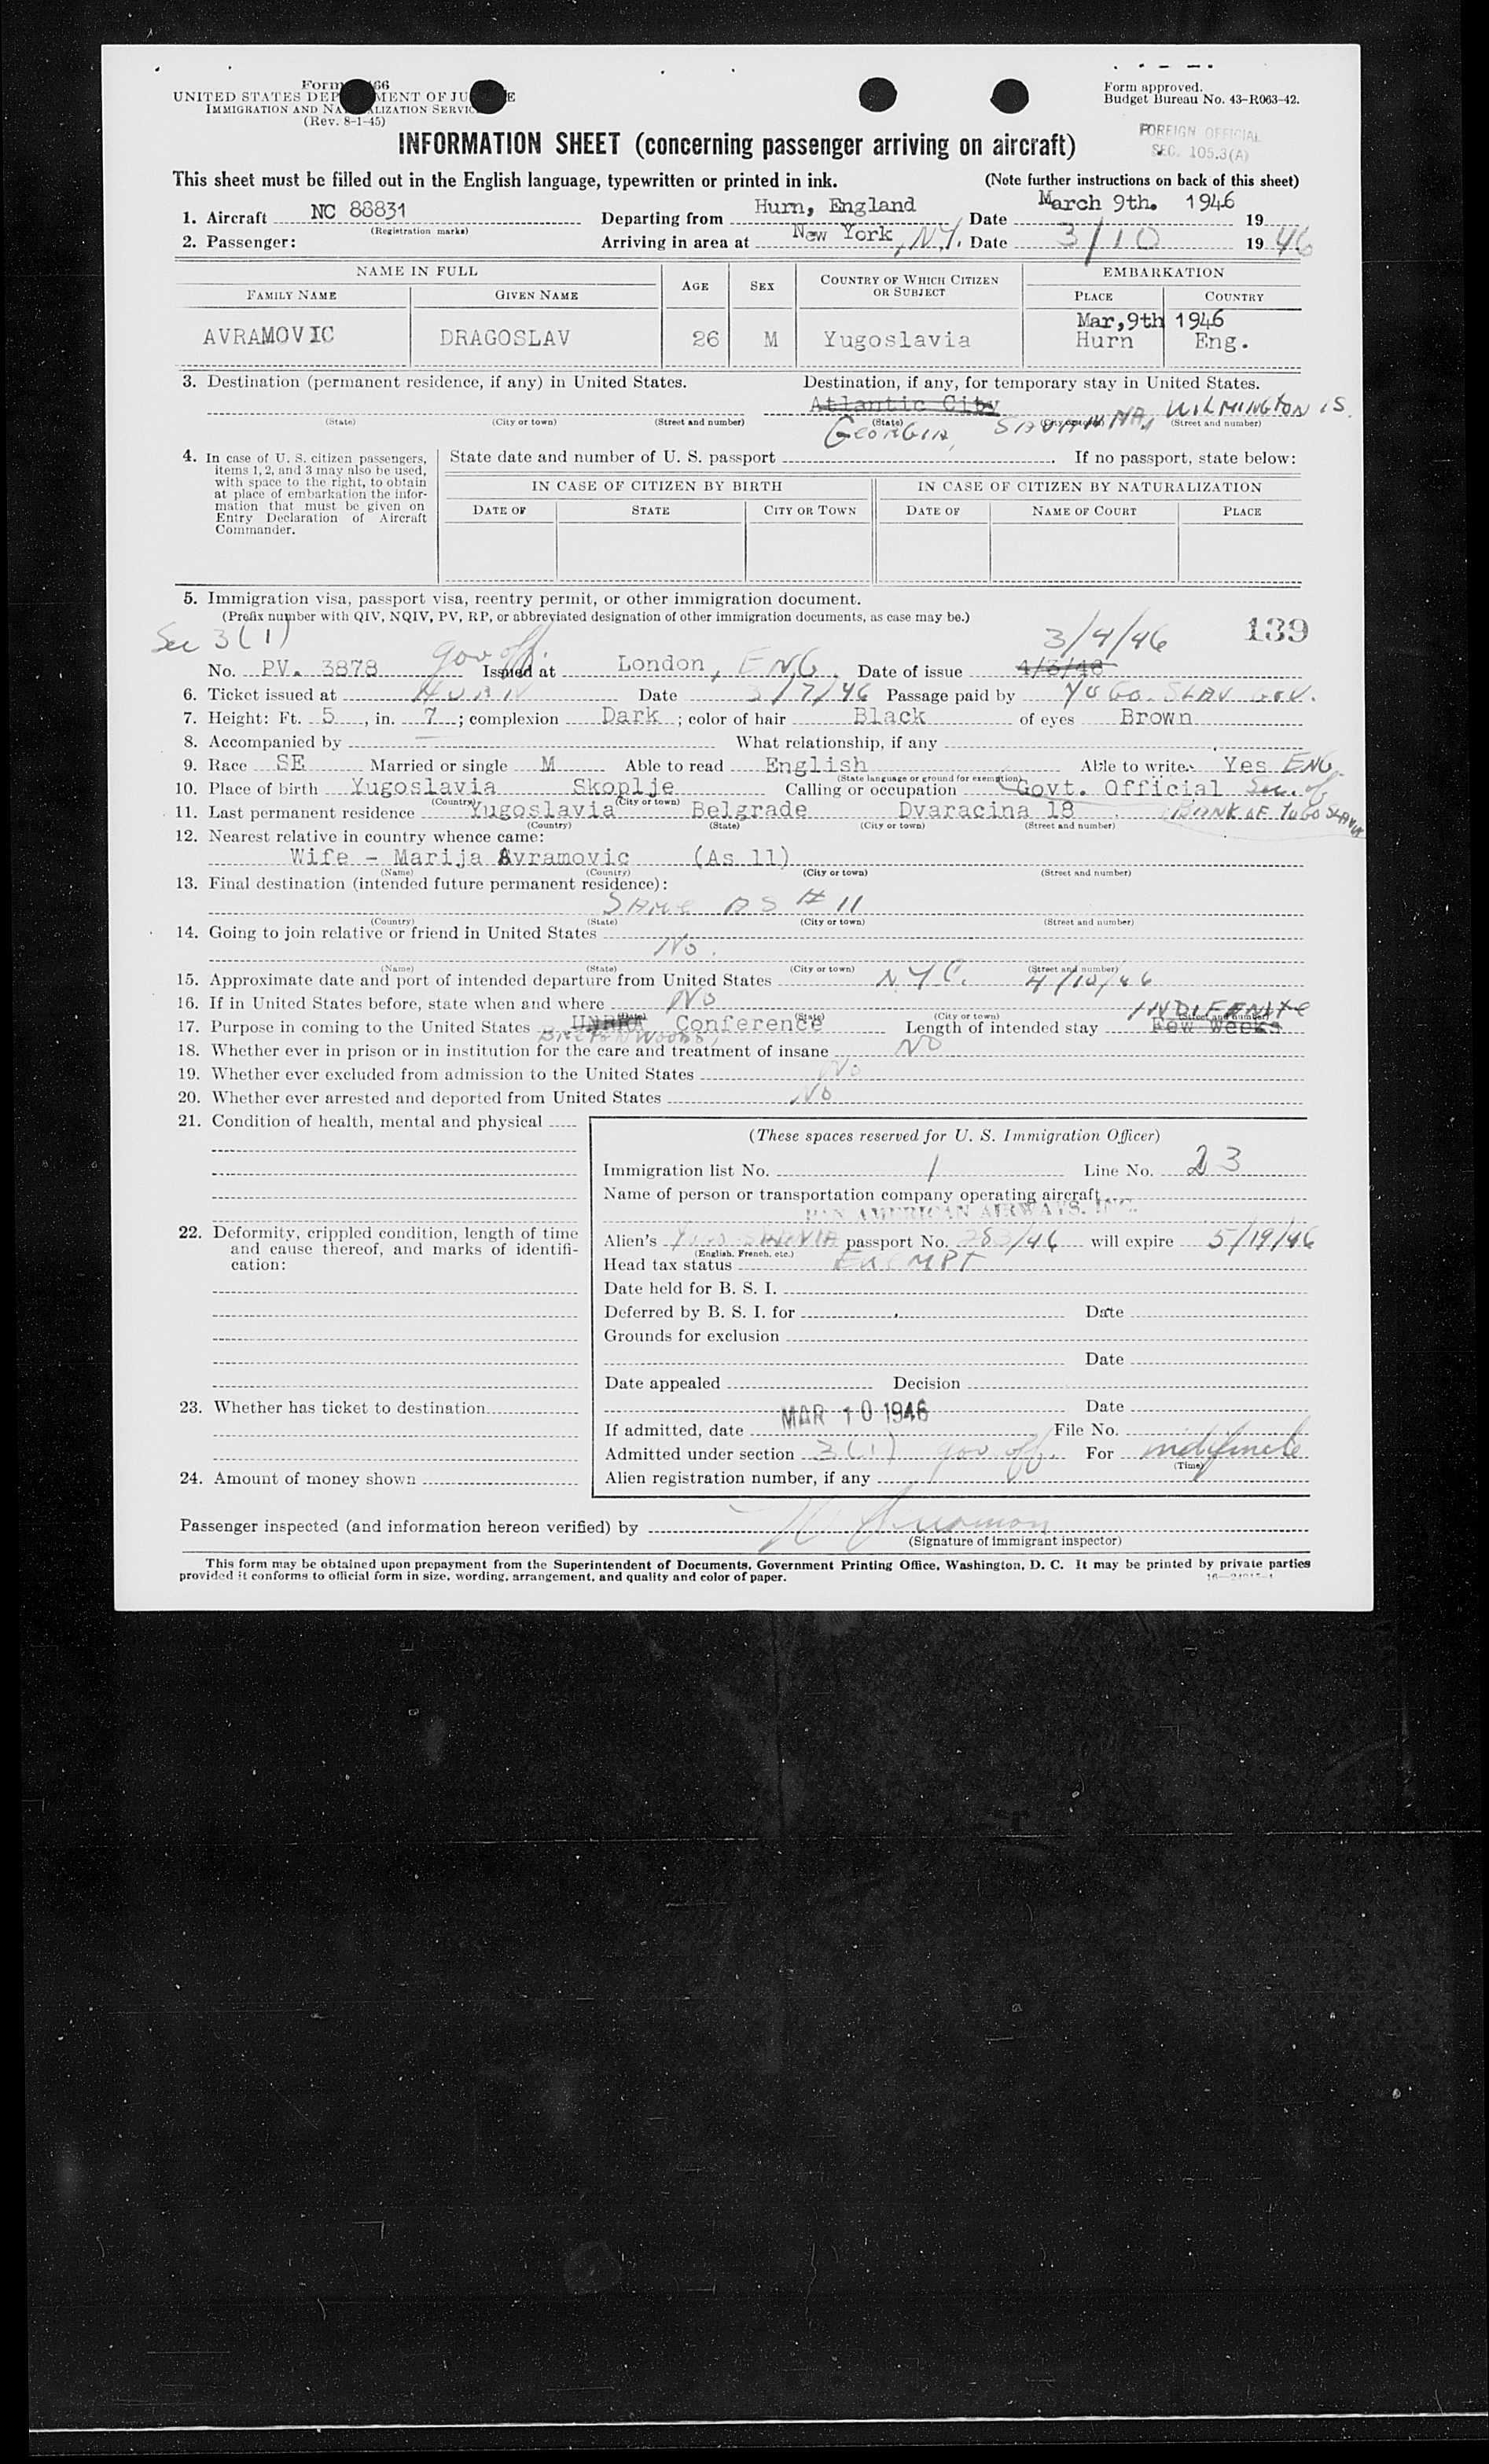 UNITED STATES DEP MENT OF JU E
IMMIGRATION AND NA LIZATION SERVIC
(Rev. 8-1-45)
Form approved.
Budget Bureau No. 43-R063-42.
FOREIGN OFFICIAL
SEC. 105.3(A)
INFORMATION SHEET (concerning passenger arriving on aircraft)
This sheet must be filled out in the English language, typewritten or printed in ink. (Note further instructions on back of this sheet)
1. Aircraft NC 88831 Departing from Hurn, England Date March 9th. 1946 19
(Registration marks)
2. Passenger: Arriving in area at New York, N.Y. Date 3/10 1946
NAME IN FULL AGE SEX COUNTRY OF WHICH CITIZEN OR SUBJECT EMBARKATION
FAMILY NAME GIVEN NAME PLACE COUNTRY
Mar,9th 1946
AVRAMOVIC DRAGOSLAV 26 M Yugoslavia Hurn Eng.
3. Destination (permanent residence, if any) in United States. Destination, if any, for temporary stay in United States.
Atlantic City WILMINGTON IS.
(State) (City or town) (Street and number) (State) (City or town) (Street and number)
GEORGIA, SAVANNA,
4. In case of U. S. citizen passengers, items 1, 2, and 3 may also be used, with space to the right, to obtain at place of embarkation the information that must be given on Entry Declaration of Aircraft Commander.
State date and number of U. S. passport If no passport, state below:
IN CASE OF CITIZEN BY BIRTH IN CASE OF CITIZEN BY NATURALIZATION
DATE OF STATE CITY OR TOWN DATE OF NAME OF COURT PLACE
5. Immigration visa, passport visa, reentry permit, or other immigration document.
(Prefix number with QIV, NQIV, PV, RP, or abbreviated designation of other immigration documents, as case may be.)
Sec 3(1) gov off. 3/4/46 139
No. PV. 3878 Issued at London, ENG. Date of issue 4/3/46
6. Ticket issued at HURN Date 3/7/46 Passage paid by YUGO. SLAV GOV.
7. Height: Ft. 5, in. 7; complexion Dark; color of hair Black of eyes Brown
8. Accompanied by — What relationship, if any
9. Race SE Married or single M Able to read English Able to write Yes ENG.
(State language or ground for exemption)
10. Place of birth Yugoslavia Skoplje Calling or occupation Govt. Official Sec. of
(Country) (City or town)
11. Last permanent residence Yugoslavia Belgrade Dvaracina 18 BANK OF YUGO SLAVIA
(Country) (State) (City or town) (Street and number)
12. Nearest relative in country whence came:
Wife - Marija Avramovic (As 11)
(Name) (Country) (City or town) (Street and number)
13. Final destination (intended future permanent residence):
SAME AS # 11
(Country) (State) (City or town) (Street and number)
14. Going to join relative or friend in United States
No.
(Name) (State) (City or town) (Street and number)
15. Approximate date and port of intended departure from United States N.Y.C. 4/10/46
16. If in United States before, state when and where No
(Date) (State) (City or town) (Street and number)
INDIFENITE
17. Purpose in coming to the United States UNRRA Conference Length of intended stay Few Weeks
BRETON WOODS,
18. Whether ever in prison or in institution for the care and treatment of insane NO
19. Whether ever excluded from admission to the United States No
20. Whether ever arrested and deported from United States No
21. Condition of health, mental and physical
22. Deformity, crippled condition, length of time and cause thereof, and marks of identification:
23. Whether has ticket to destination
24. Amount of money shown
(These spaces reserved for U. S. Immigration Officer)
Immigration list No. 1 Line No. 23
Name of person or transportation company operating aircraft
PAN AMERICAN AIRWAYS, INC.
Alien's YUGO SLAVIA passport No. /46 will expire 5/19/46
(English, French, etc.)
Head tax status EXEMPT
Date held for B. S. I.
Deferred by B. S. I. for Date
Grounds for exclusion
Date
Date appealed Decision
Date
If admitted, date MAR 10 1946 File No.
Admitted under section 3(1) gov off. For indifinite
(Time)
Alien registration number, if any
Passenger inspected (and information hereon verified) by
(Signature of immigrant inspector)
This form may be obtained upon prepayment from the Superintendent of Documents, Government Printing Office, Washington, D. C. It may be printed by private parties
provided it conforms to official form in size, wording, arrangement, and quality and color of paper.